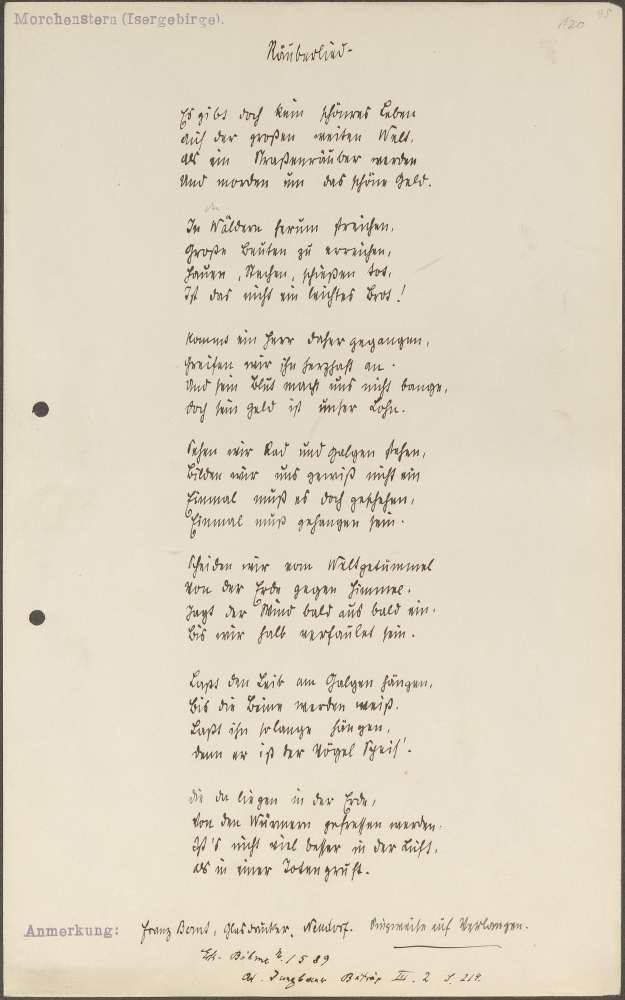 Morchenstern (Isergebirge).
120
95
Räuberlied.
Es gibt doch kein schönres Leben
auf der großen weiten Welt,
als ein Straßenräuber werden
Und morden um das schöne Geld.
In Wäldern herum streichen,
Große Beuten zu erreichen,
Hauen, Stechen, schießen tot,
Ist das nicht ein leichtes Brot!
Kommt ein Herr daher gegangen,
Greifen wir ihn herzhaft an.
Und sein Blut macht uns nicht bange,
doch sein Geld ist unser Lohn.
Sehen wir Rad und Galgen stehen,
Bilden wir uns gewiß nicht ein
Einmal muß es doch geschehen,
Einmal muß gehangen sein.
Scheiden wir vom Weltgetümmel
Von der Erde gegen Himmel.
Jagt der Wind bald aus bald ein.
Bis wir halb verfaulet sein.
Laßt den Leib am Galgen hängen,
bis die Beine werden weiß.
Laßt ihn solange hängen,
denn er ist der Vögel Speis'.
die da liegen in der Erde,
Von den Würmern gefressen werden.
Ist's nicht viel besser in der Luft,
als in einer Totengruft.
Anmerkung: Franz Bernt, Glasdrucker, Neudorf. Singweise auf Verlangen.
Erk. Böhme N. 1589
Ad. Jungbauer Beiträge III. 2 S. 219.